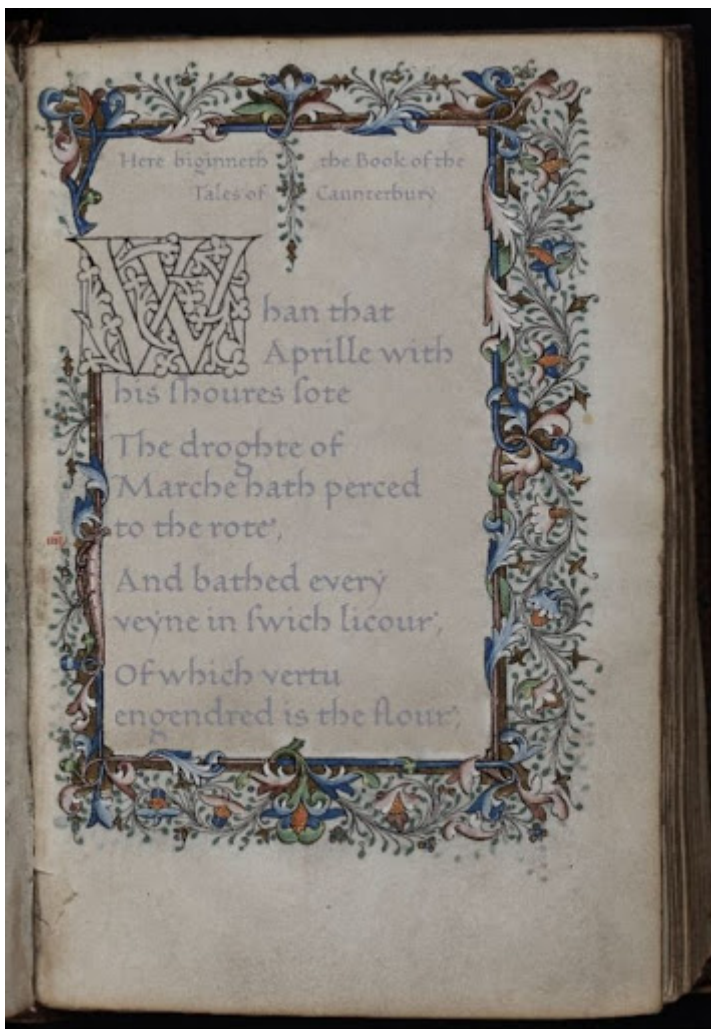 Here biginneth the Book of the
Tales of Caunterbury
Whan that
Aprille with
his ſhoures ſote
The droghte of
Marche hath perced
to the rote,
And bathed every
veyne in ſwich licour,
Of which vertu
engendred is the flour;